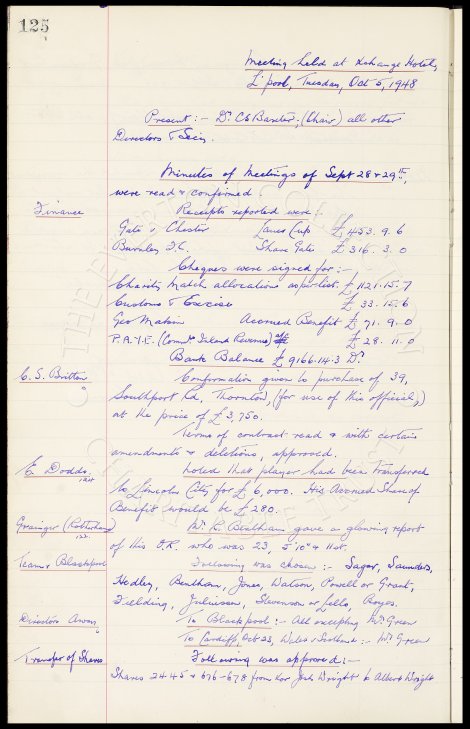 125
Meeting held at Xchange Hotel,
L'pool, Tuesday, Oct 5, 1948
Present :- Dr. C S Baxter, (Chair) all other
Directors & Secy.
Minutes of Meetings of Sept 28 & 29th,
were read & confirmed.
Finance
Receipts reported were :-
Gate v Chester Lancs Cup £453. 9. 6
Burnley F.C. Share Gate £316. 3. 0
Cheques were signed for :-
Charity Match allocations as per list £1121. 15. 7
Customs & Excise £33. 15. 6
Geo Makin Accrued Benefit £71. 9. 0
P.A.Y.E. (Commr Inland Revenue) £28. 11. 0
Bank Balance £9166. 14. 3 Dr.
C. S. Britton
Confirmation given to purchase of 39,
Southport Rd, Thornton, (for use of this official,)
at the price of £3,750.
Terms of contract read & with certain
amendments & deletions, approved.
E. Dodds.
Noted that player had been transferred
to Lincoln City for £6,000. His Accrued Share of
Benefit would be £280.
Grainger (Rotherham)
Mr. R. gave a glowing report
of this O.R. who was 23, 5'10" & 11st.
Team v Blackpool
Following was chosen :- Sagar, Saunders,
Hedley, Bentham, Jones, Watson, Powell or Grant,
Fielding, Juliussen, Stevenson or Lello, Boyes.
Directors Away
To Blackpool :- All excepting Mr. Green
To Cardiff, Oct 23, Wales v Scotland :- Mr Green
Transfer of Shares
Following was approved :-
Shares 2445 & 676-678 from Jos Wright to Albert Wright